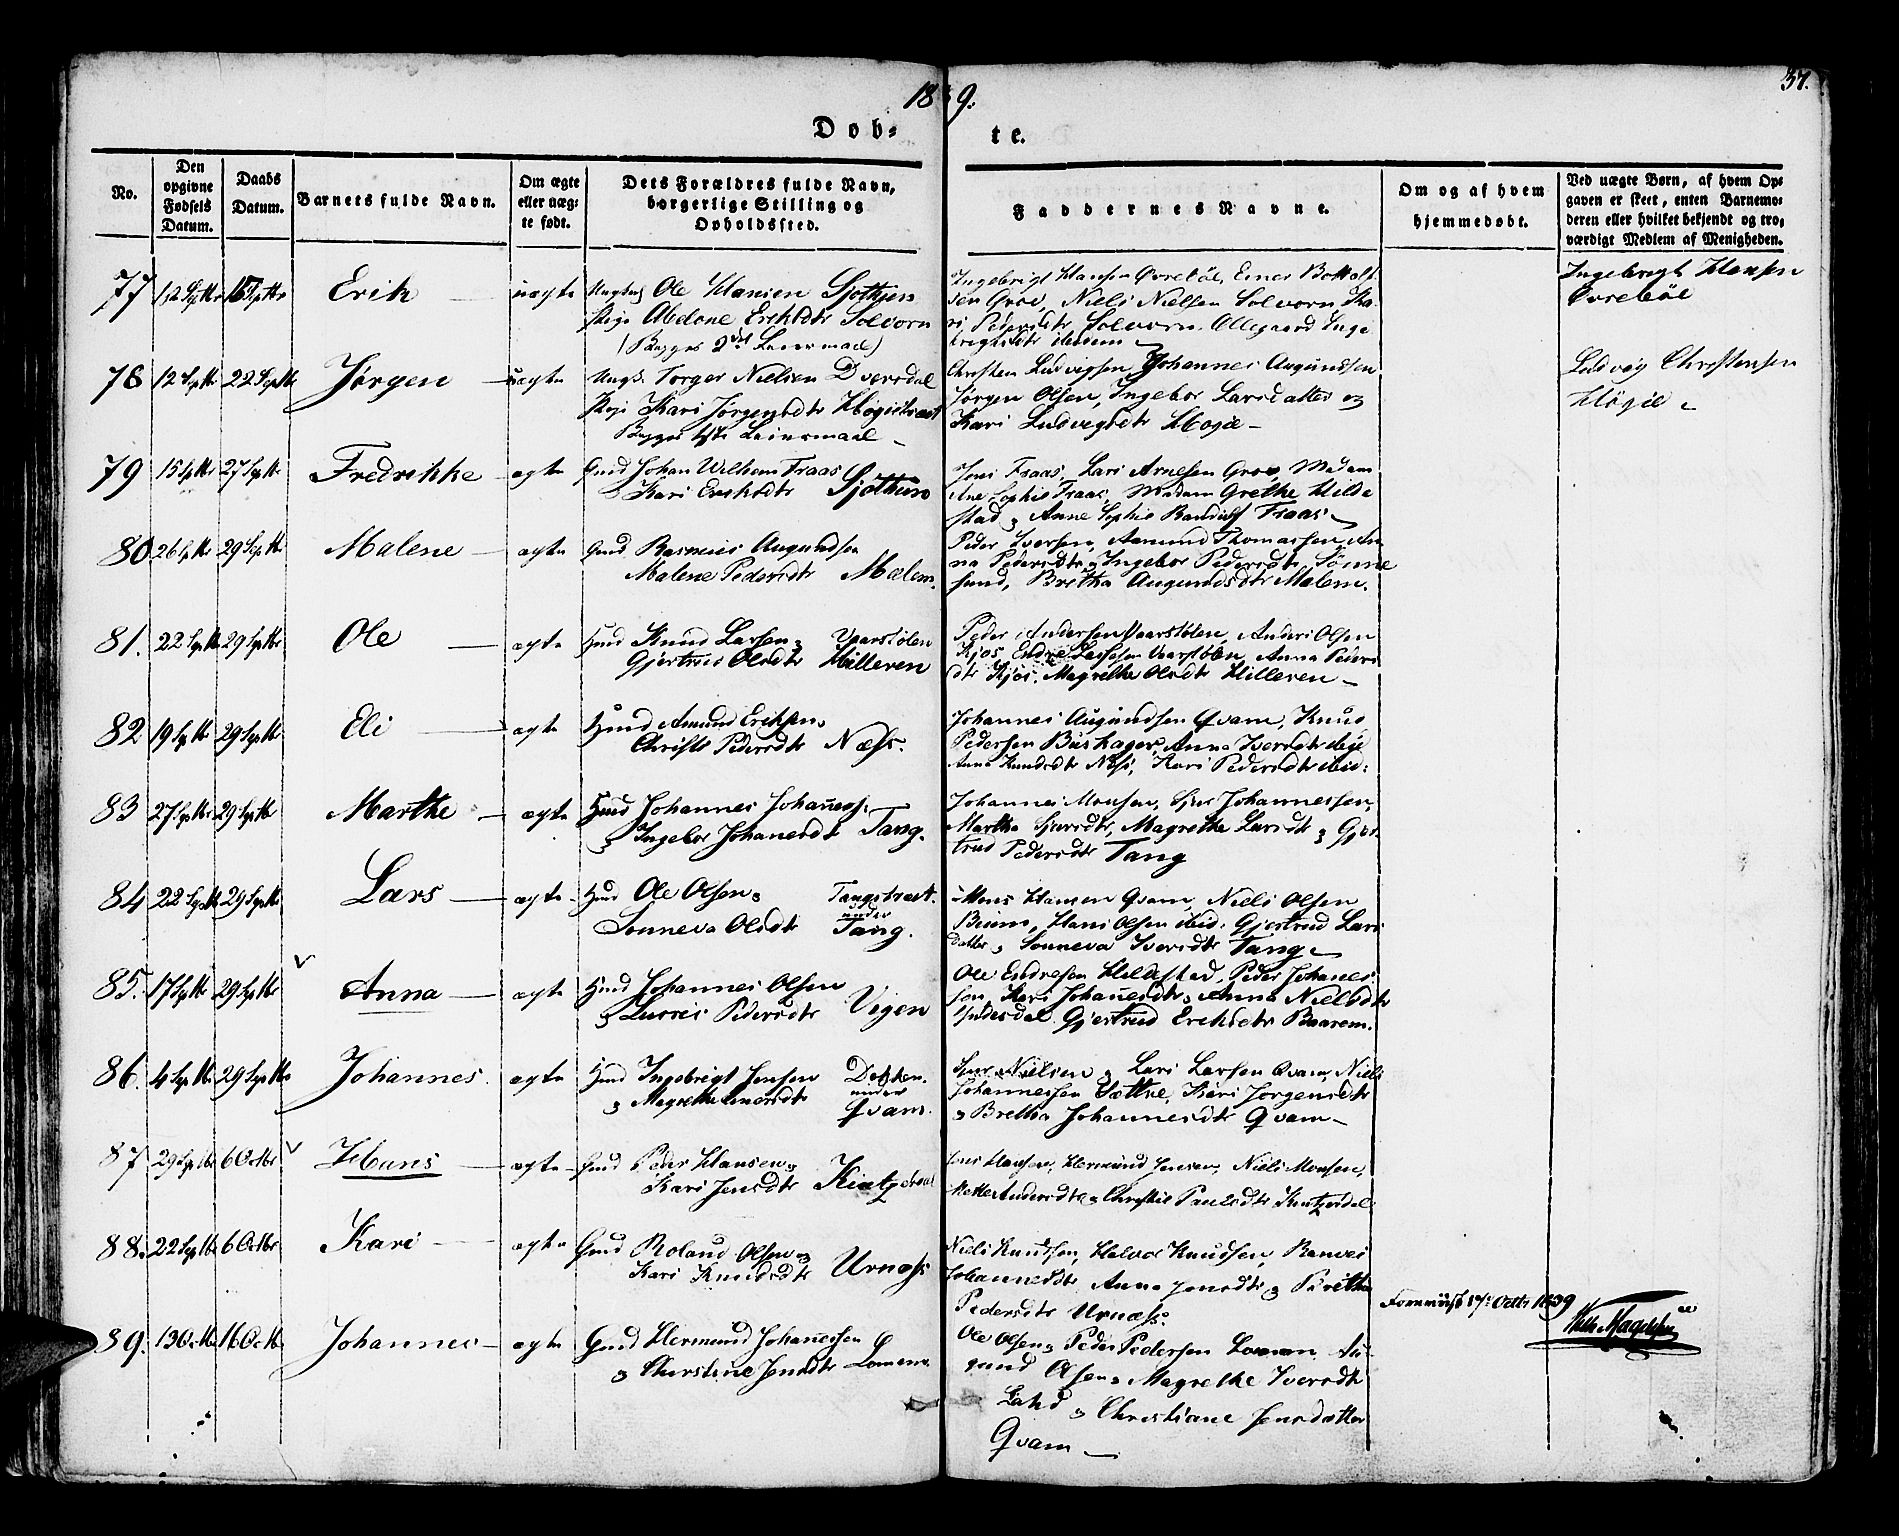 18 9.
37.
Døb- te.
No.
Den opgivne Fødsels Datum.
Daabs Datum.
Barnets fulde Navn.
Om ægte eller uægte født.
Dets Forældres fulde Navn, borgerlige Stilling og Opholdssted.
Faddernes Navne.
Om og af hvem hjemmedøbt.
Ved uægte Børn, af hvem Opgaven er skeet, enten Barnemoderen eller hvilket bekjendt og troværdigt Medlem af Menigheden.
77 12 Septbr 15 Septbr Erik uægte Ungk. Ole Hansen Sjøthun
Pige Abelone Eriksdtr Solvorn
(Begges 2det Leiermaal)
Ingebrigt Hansen Øvrebøe, Einer Bottolf-
sen Groe, Niels Nielsen Solvorn, Ka-
ri Pedersdtr Solvorn, Ollegaard Inge-
brigtsdtr ibidem
Ingebrigt Hansen
Øvrebøe
78 12 Septbr 22 Septbr Jørgen uægte Ungk. Torger Nielsen Dversdal
Pige Kari Jørgensdtr Høgietræet
Begges 1ste Leiermaal
Christen Ludvigsen, Johannes Augundsen
Jørgen Olsen, Ingebor Larsdatter og
Kari Ludvigsdtr Høgie
Ludvig Christensen
Høgie
79 15 Septbr 27 Septbr Fredrikke ægte Gmd Johan Wilhem Fraas
Kari Eriksdtr Sjøthun
Jens Fraas, Lars Arnesen Groe, Madam
Ane Sophie Fraas, Madam Grethe Hilde
stad & Anne Sophie Fraas
80. 26 Septbr 29 Septbr Malene ægte Gmd Rasmus Augundsen
Malene Pedersdtr Mælem.
Peder Iversen, Aamund Thomassen, An-
na Pedersdtr, Ingebor Pedersdtr Sønne
sund, Bretha Augundsdtr Mælem.
81. 22 Septbr 29 Septbr Ole ægte Hmd Knud Larsen & Vaarstølen
Gjertrud Olsdtr Hilleren
Peder Andersen Vaarstølen, Anders Olsen
Kjos, Endre Larsen Vaarstølen, Anna Peders
dtr Kjos, Magrethe Olsdtr Hilleren
82 19 Septbr 29 Septbr Eli ægte Hmd Amund Eriksen
Christi Pedersdtr Næss.
Johannes Augundsen Qvam, Knud
Pedersen Buskager, Anna Iversdtr ibid
Anna Knudsdtr Næss, Kari Pedersdtr ibid:
83 27 Septbr 29 Septbr Marthe ægte Hmd Johannes Johaness:
& Ingebor Johanesdt Tang.
Johannes Monsen, Sjur Johannessen,
Martha Sjursdtr, Magrethe Larsdtr & Gjer-
trud Pedersdtr Tang
84 22 Septbr 29 Septbr Lars ægte Hmd Ole Olsen & Tangetræet
under
Sønneva Olsdtr Tang.
Mons Hansen Qvam, Niels Olsen
Bruun, Hans Olsen ibid, Gjertrud Lars
datter & Sønneva Iversdtr Tang
85. 17 Septbr 29 Septbr Anna ægte Hmd Johannes Olsen
& Lussie Pedersdtr Vigen
Ole Endresen Hildestad, Peder Johanes-
sen, Kari Johanesdtr & Anna Nielsdtr
Gjertrud Eriksdtr Baarem.
86. 4 Septbr 29 Septbr Johannes ægte Hmd Ingebrigt Jensen
& Magrethe under
Qvam.
Sjur Nielsen & Lars Larsen Qvam, Niels
Johannessen Sættre, Kari Jørgensdtr
& Bretha Johannesdtr Qvam
87 29 Septbr 6 Octbr Hans ægte Gmd Peder Hansen &
Kari Jensdtr Kintzedal
Jens Hansen, Hermund Jensen, Niels Monsen,
Mette Andersdtr & Christie Paulsdtr Kintzedal
88. 22 Septbr 6 Octbr Kari ægte Gmd Roland Olsen &
Kari Knudsdtr Urnæss
Niels Knudsen, Halvor Knudsen, Ranvei
Johannesdtr Anna Jensdtr & Britha
Pedersdtr Urnæss.
89. 13 Octbr 16 Octbr Johannes ægte Gmd Hermund Johanessen
& Christine Jensdtr Lomen
Ole Olsen & Peder Pedersen Lomen, Au-
gund Olsen & Magrethe Iversdtr
Lahd & Christiane Jensdatter
Qvam
17: Octbr 1839